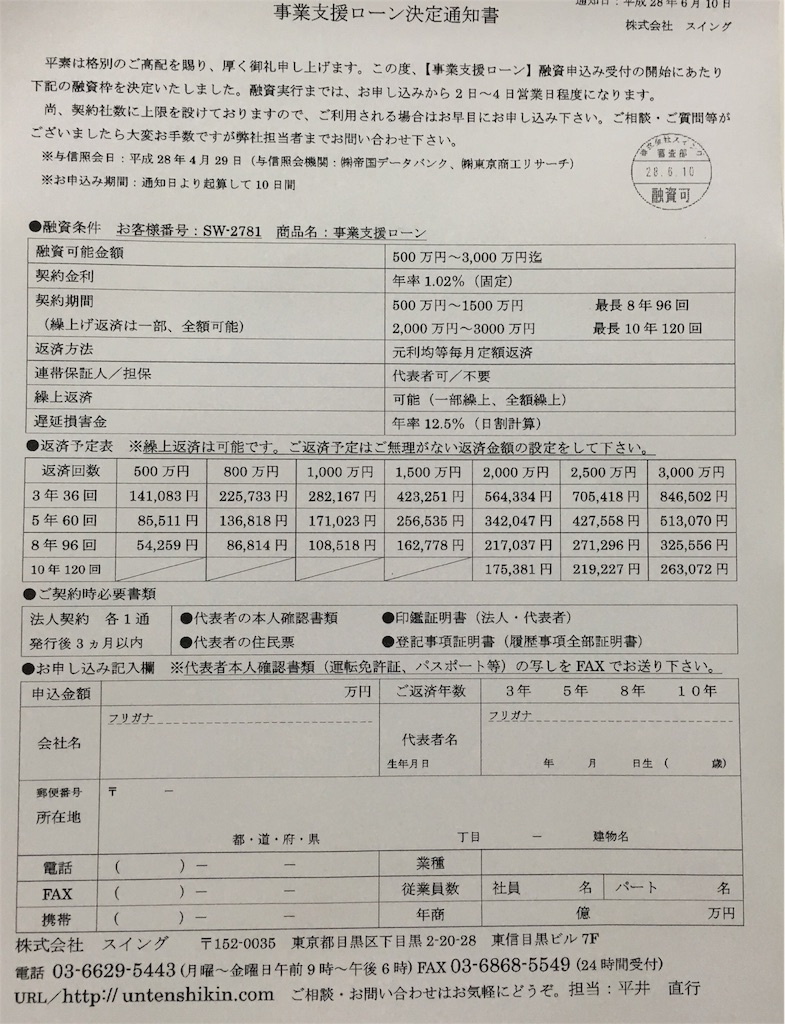 事業支援ローン決定通知書
通知日：平成28年6月10日
株式会社　スイング
平素は格別のご高配を賜り、厚く御礼申し上げます。この度、【事業支援ローン】融資申込み受付の開始にあたり
下記の融資枠を決定いたしました。融資実行までは、お申し込みから2日～4日営業日程度になります。
尚、契約社数に上限を設けておりますので、ご利用される場合はお早目にお申し込み下さい。ご相談・ご質問等が
ございましたら大変お手数ですが弊社担当者までお問い合わせ下さい。
※与信照会日：平成28年4月29日（与信照会機関：㈱帝国データバンク、㈱東京商工リサーチ）
※お申込み期間：通知日より起算して10日間
株式会社スイング
審査部
28.6.10
融資可
●融資条件　お客様番号：SW-2781　商品名：事業支援ローン
融資可能金額　500万円～3,000万円迄
契約金利　年率1.02%（固定）
契約期間　500万円～1500万円　最長8年96回
（繰上げ返済は一部、全額可能）　2,000万円～3000万円　最長10年120回
返済方法　元利均等毎月定額返済
連帯保証人／担保　代表者可／不要
繰上返済　可能（一部繰上、全額繰上）
遅延損害金　年率12.5%（日割計算）
●返済予定表　※繰上返済は可能です。ご返済予定はご無理がない返済金額の設定をして下さい。
返済回数　500万円　800万円　1,000万円　1,500万円　2,000万円　2,500万円　3,000万円
3年36回　141,083円　225,733円　282,167円　423,251円　564,334円　705,418円　846,502円
5年60回　85,511円　136,818円　171,023円　256,535円　342,047円　427,558円　513,070円
8年96回　54,259円　86,814円　108,518円　162,778円　217,037円　271,296円　325,556円
10年120回　175,381円　219,227円　263,072円
●ご契約時必要書類
法人契約　各1通　●代表者の本人確認書類　●印鑑証明書（法人・代表者）
発行後3ヵ月以内　●代表者の住民票　●登記事項証明書（履歴事項全部証明書）
●お申し込み記入欄　※代表者本人確認書類（運転免許証、パスポート等）の写しをFAXでお送り下さい。
申込金額　万円　ご返済年数　3年　5年　8年　10年
フリガナ　フリガナ
会社名　代表者名
生年月日　年　月　日生（　歳）
郵便番号　〒　－
所在地
都・道・府・県　丁目　－　建物名
電話　（　）－　－　業種
FAX　（　）－　－　従業員数　社員　名　パート　名
携帯　（　）－　－　年商　億　万円
株式会社　スイング　〒152-0035　東京都目黒区下目黒2-20-28　東信目黒ビル7F
電話 03-6629-5443（月曜～金曜日午前9時～午後6時）FAX 03-6868-5549（24時間受付）
URL／http://untenshikin.com　ご相談・お問い合わせはお気軽にどうぞ。担当：平井　直行